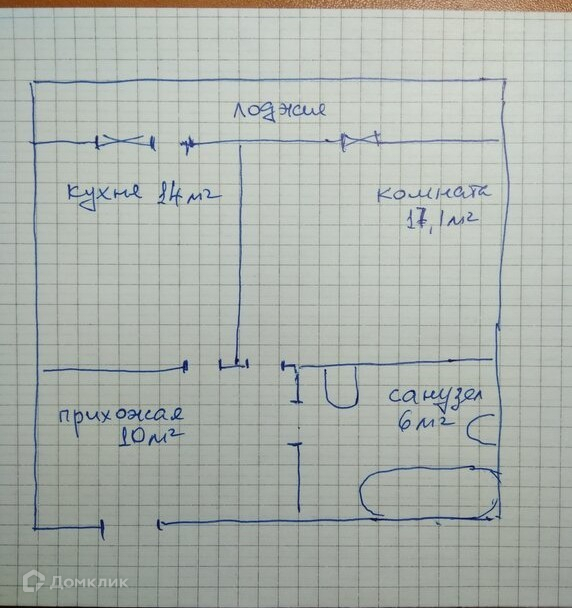 лоджия
кухня 14 м²
комната
17,1 м²
прихожая
10 м²
санузел
6 м²
Домклик